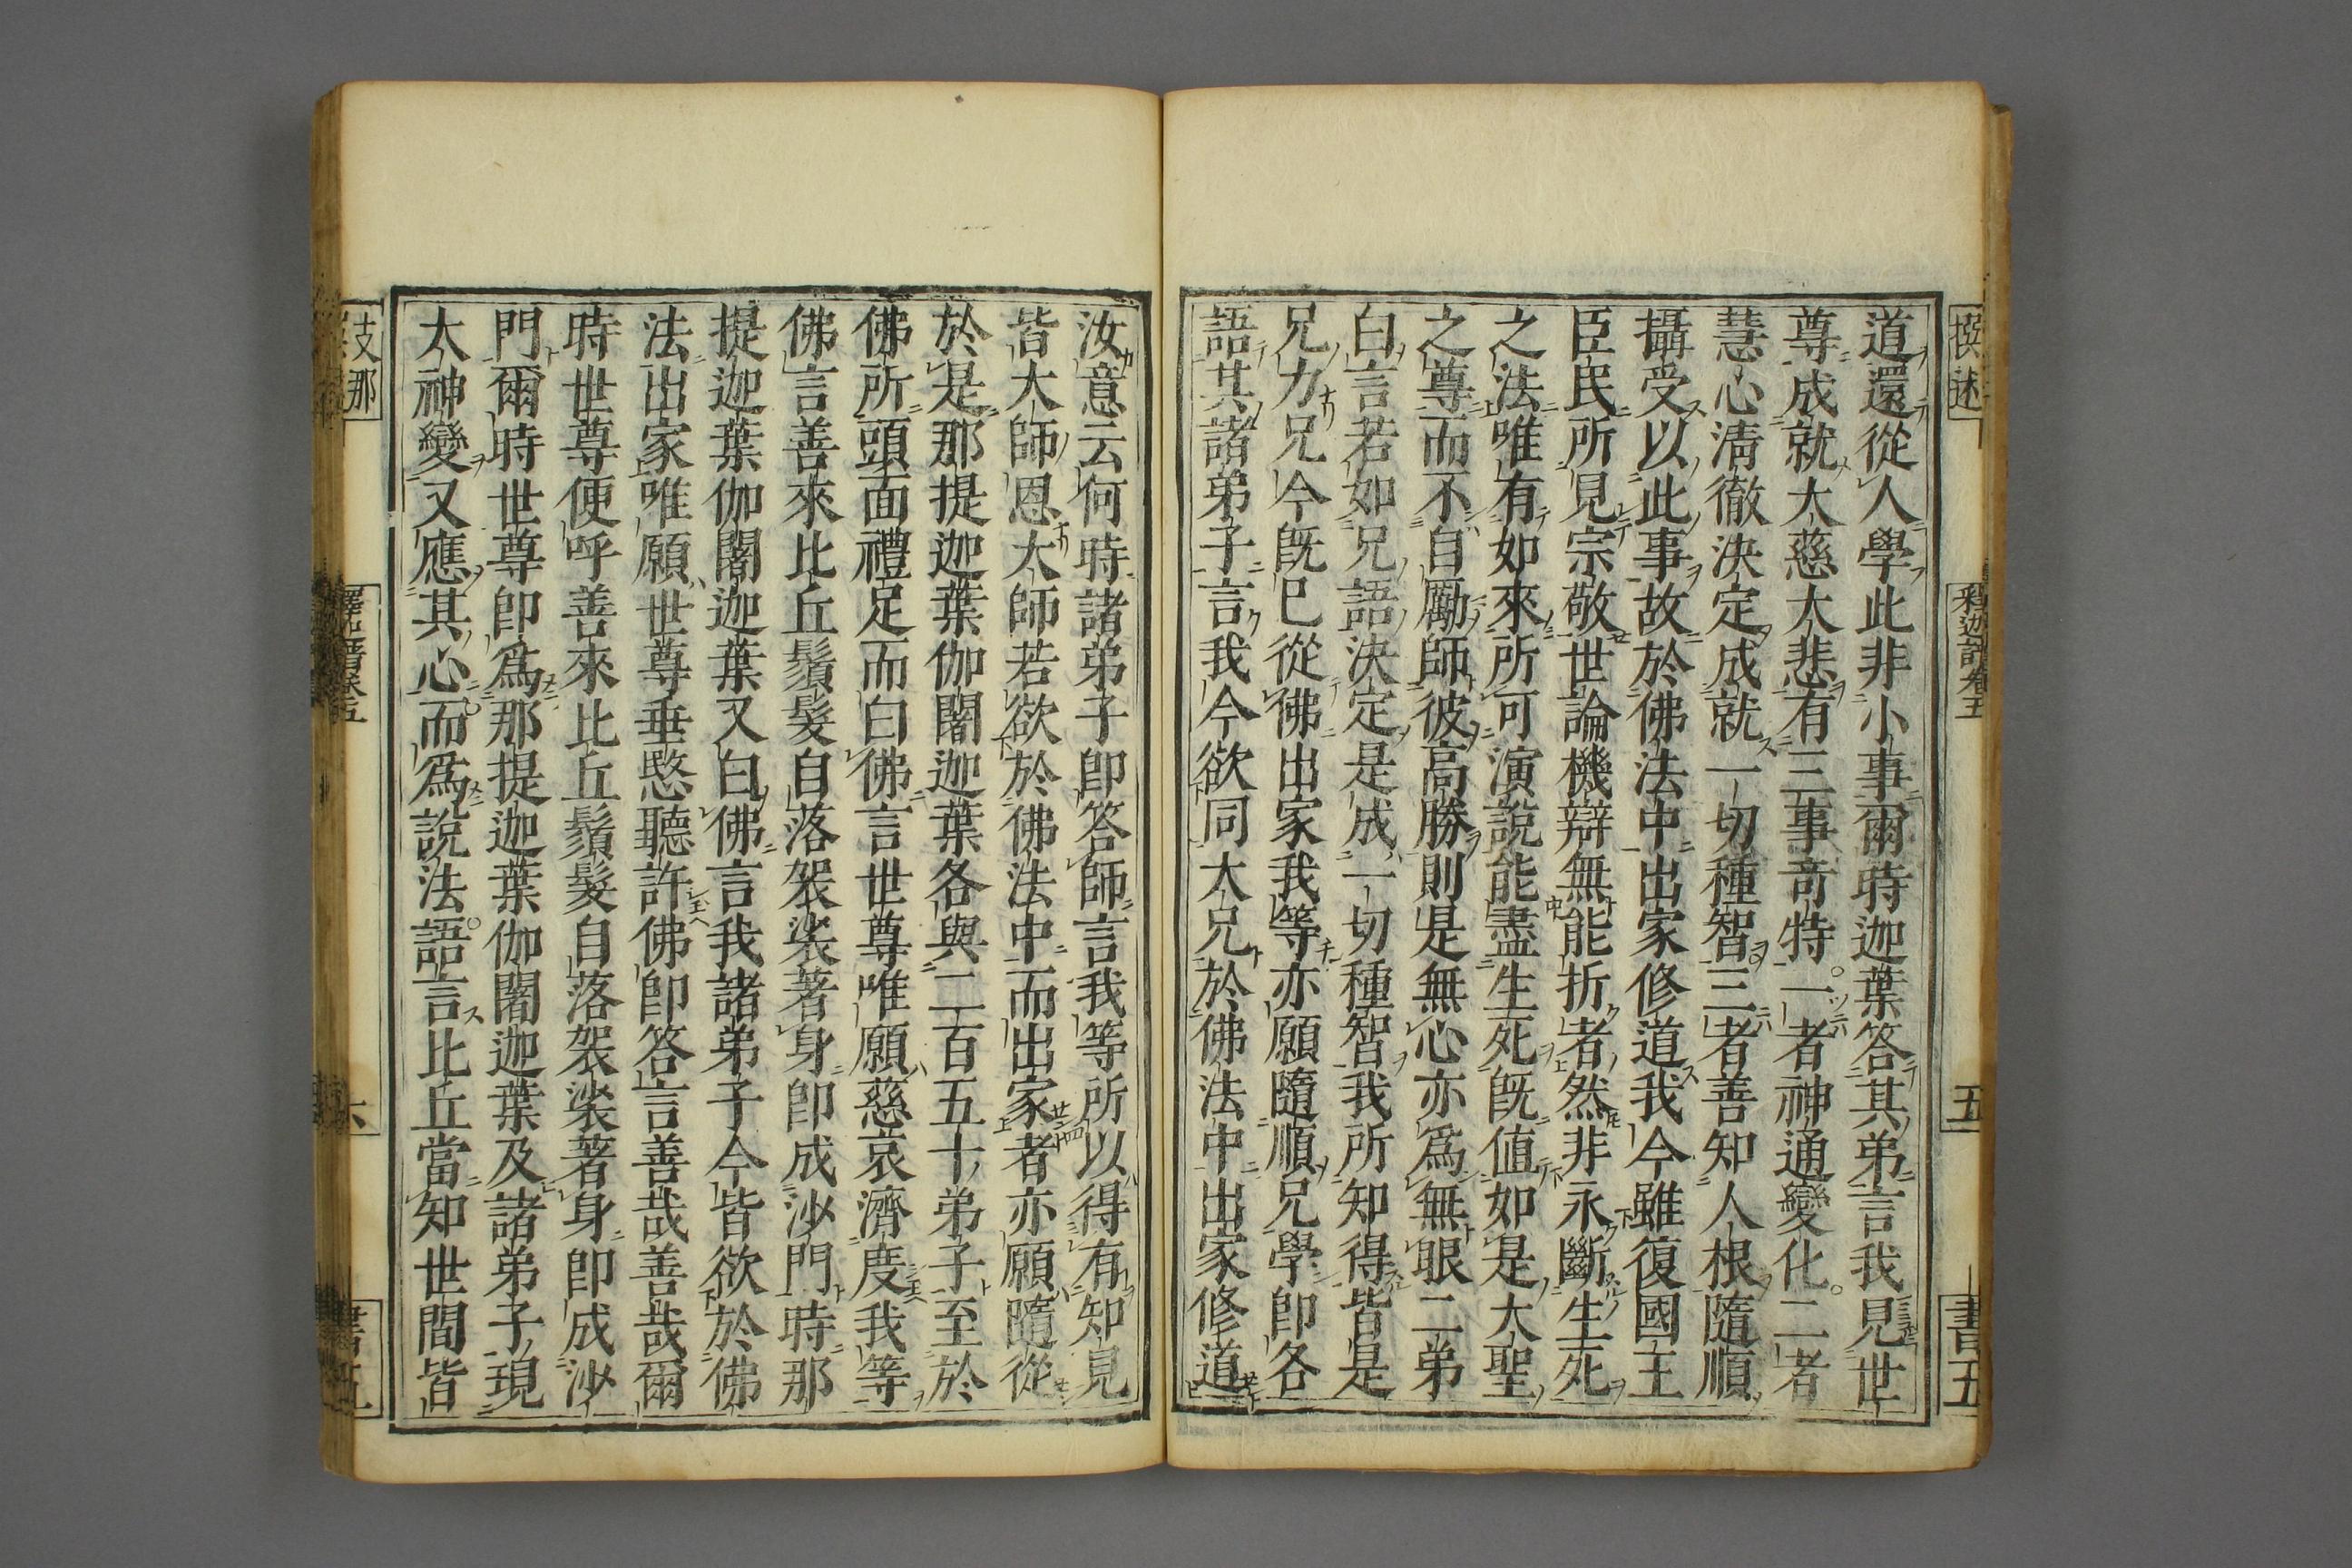 道還從人學此非小事爾時迦葉答其弟言我見世
尊成就大慈大悲有三事奇特一者神通變化二者
慧心淸徹決定成就一切種智三者善知人根隨順
攝受以此事故於佛法中出家修道我今雖復國王
臣民所見宗敬世論機辯無能折者然非永斷生死
之法唯有如來所可演說能盡生死旣値如是大聖
之尊而不自勵師彼高勝則是無心亦爲無眼二弟
白言若如兄語決定是成一切種智我所知得皆是
兄力兄今旣已從佛出家我等亦願隨順兄學卽各
語其諸弟子言我今欲同大兄於佛法中出家修道
汝意云何時諸弟子卽答師言我等所以得有知見
皆大師恩大師若欲於佛法中而出家者亦願隨從
於是那提迦葉伽闍迦葉各與二百五十弟子至於
佛所頭面禮足而白佛言世尊唯願慈哀濟度我等
佛言善來比丘鬚髮自落袈裟著身卽成沙門時那
提迦葉伽闍迦葉又白佛言我諸弟子今皆欲於佛
法出家唯願世尊垂愍聽許佛卽答言善哉善哉爾
時世尊便呼善來比丘鬚髮自落袈裟著身卽成沙
門爾時世尊卽爲那提迦葉伽闍迦葉及諸弟子現
大神變又應其心而爲說法語言比丘當知世間皆
撰述
釋迦譜卷五
五
書五
支那
六